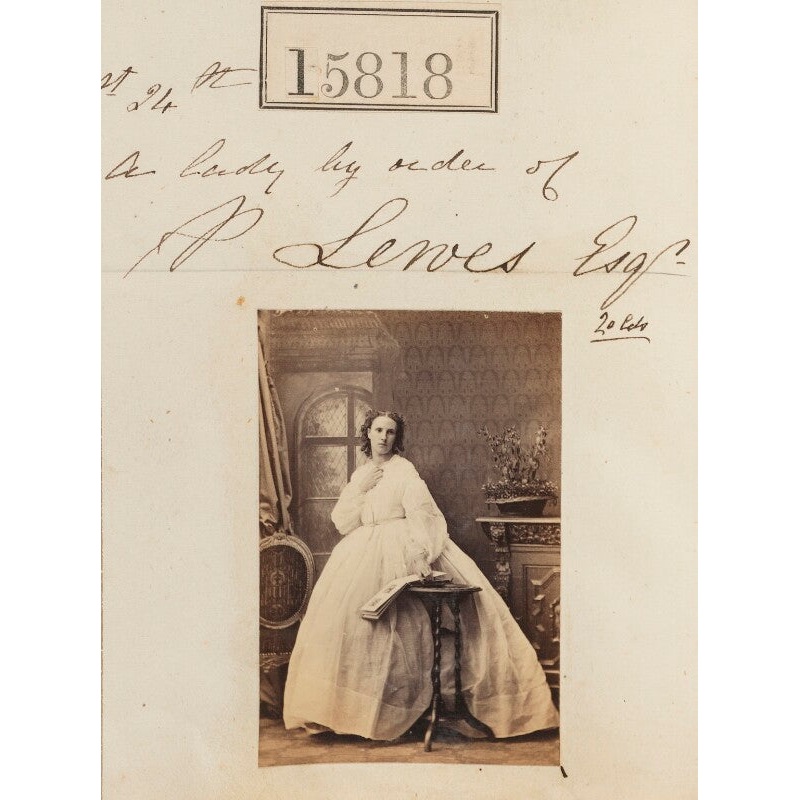 15818
st 24th
A lady by order of
P Lewes Esqr